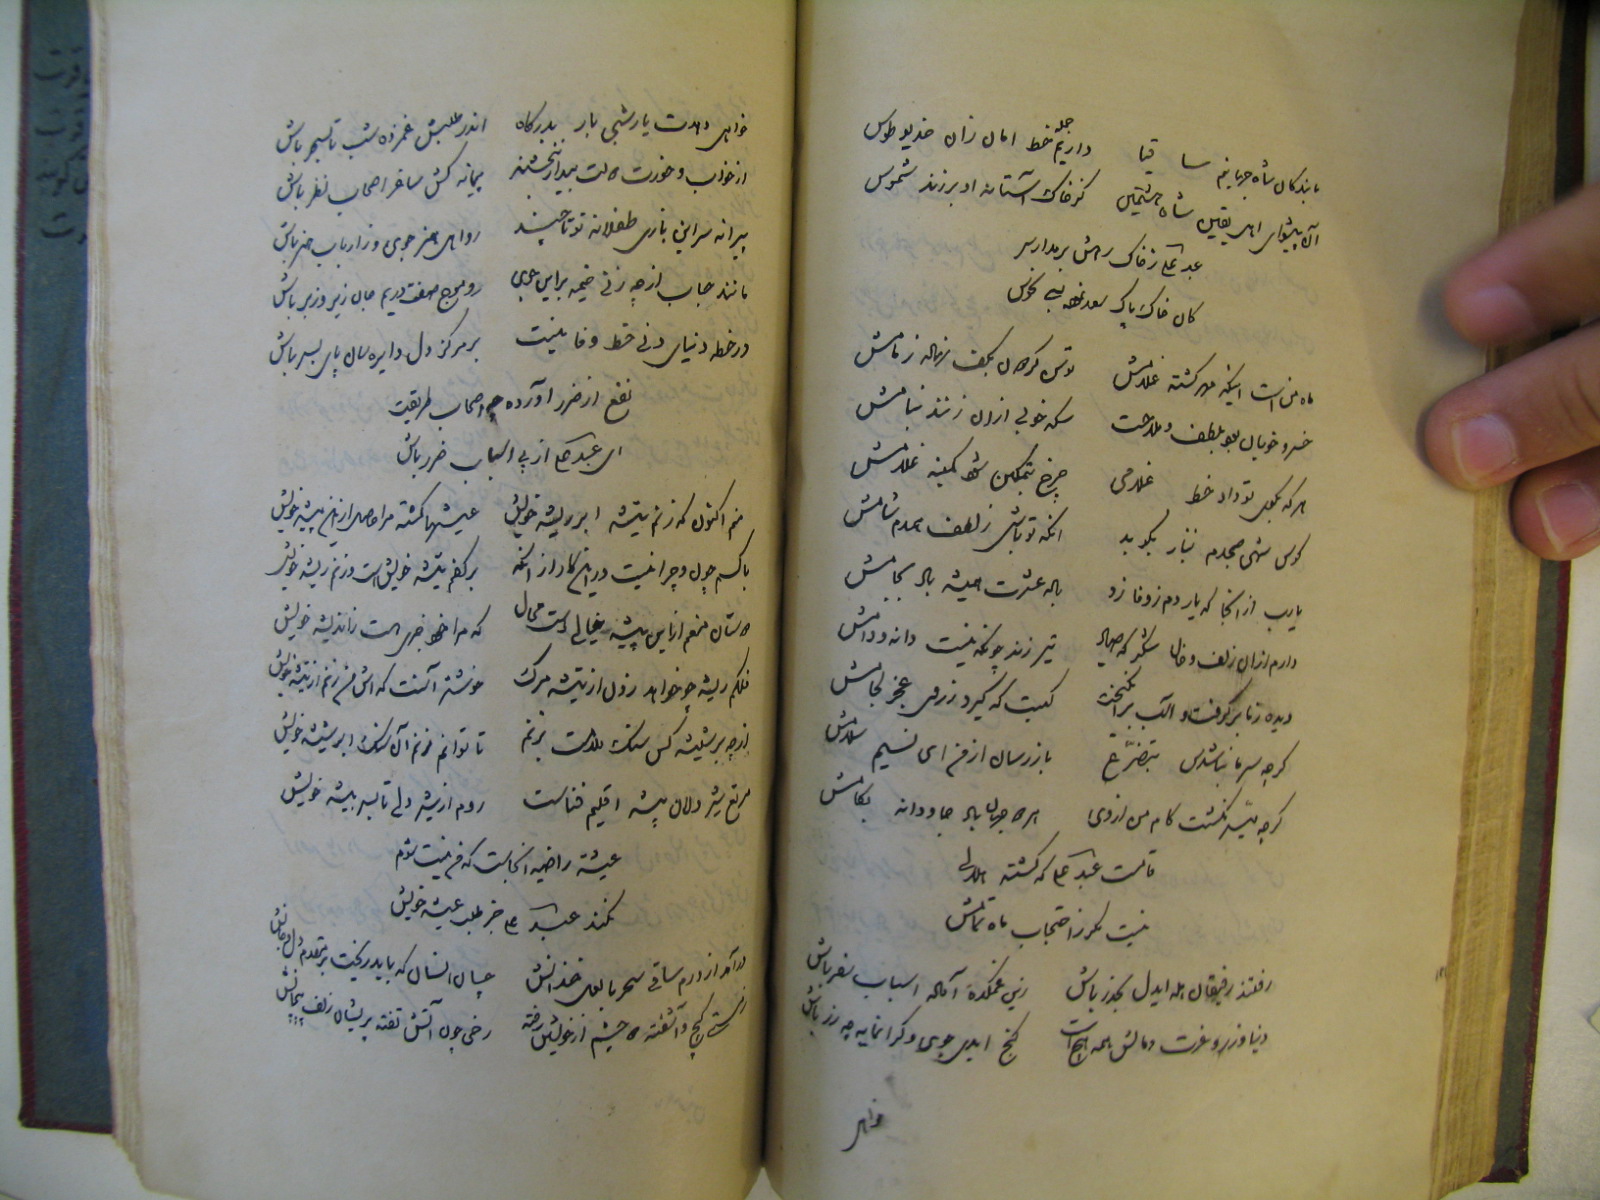 ما بندگان شاه جهانیم ساقیا
داریم جمله خط امان زان خدیو طوس
آن پیشوای اهل یقین شاه هشتمین
کز خاک آستانه او برزند شموس
عبد علی ز خاک رهش بر مدار سر
کان خاک پاک
ماه من است اینکه مهر گشته غلامش
بکف
خسرو خوبان بود بلطف و ملاحت
سکه خوبی از آن زنند بنامش
هر که بملک تو داد خط غلامی
چرخ بتمکین شود کمینه غلامش
کوس شهی صبحدم بناز بکوبد
آنکه تو باشی ز لطف همدم شامش
یارب از آنجا که یار دم ز وفا زد
باده عشرت همیشه باد بجامش
دارم از آن زلف و خال شکر که صیاد
تیر زند چونکه نیست دانه و دامش
دیده ز ما بر گرفت و اسب بر انگیخت
کیست که گیرد ز روی عجز لجامش
گرچه سر ما نباشدش بتضرع
باز رسان از من ای نسیم سلامش
گرچه میسر نگشت کام من از وی
هر دو جهان باد جاودانه بکامش
قامت عبد علی که گشته هلالی
نیست مگر ز احتجاب ماه تمامش
رفتند رفیقان هله ایدل بحذر باش
زین غمکده آماده اسباب سفر باش
دنیا و زر و عزت و مالش همه هیچ است
گنج ابدی جوی و گرانمایه چه زر باش
خواهی
خواهی دهدت یار شبی بار بدرگاه
اندر طلبش غمزده شب تا بسحر باش
از خواب و خورت حالت بیدار نبخشند
پیمانه کش ساغر اصحاب نظر باش
پیرانه سر این بازی طفلانه تو تا چند
رو اهل هنر جوی و ز ارباب هنر باش
مانند حباب از چه زنی خیمه بر این جوی
رو موج صفت در یم جان زیر و زبر باش
در خطه دنیای دنی خط وفا نیست
بر مرکز دل دایره سان پای بسر باش
نفع از ضرر آورده اصحاب طریقت
ای عبد علی از پی اسباب ضرر باش
منم اکنون که زنم تیشه ابر ریشه خویش
عیشها گشته مرا حاصل از این پیشه خویش
با کسم چون و چرا نیست در این کار از آنکه
بر کفم تیشه خویش است و زنم ریشه خویش
دوستان منعم از این پیشه خیالی است محال
که مرا خود خبری هست ز اندیشه خویش
فلکم ریشه چو خواهد زدن از تیشه مرگ
خوشتر آنست که اش من زنم از تیشه خویش
ار چه بر شیشه کس سنگ ملامت نزنم
تا توانم بزنم آن سنگ ابر شیشه خویش
مرتع شیر دلان بیشه اقلیم فناست
روم از شیر دلی تا بسر بیشه خویش
عیشة راضیه آنجاست که من نیست شوم
نکند عبد علی جز طلب عیشه خویش
در آمد از درم ساقی سحر با لعل خندانش
چسان انسان که باید ریخت بر مقدم دل و جانش
کج و آشفته دو چشم از خویشتن رفته
رخی چون آتش تفته پریشان زلف پیچانش